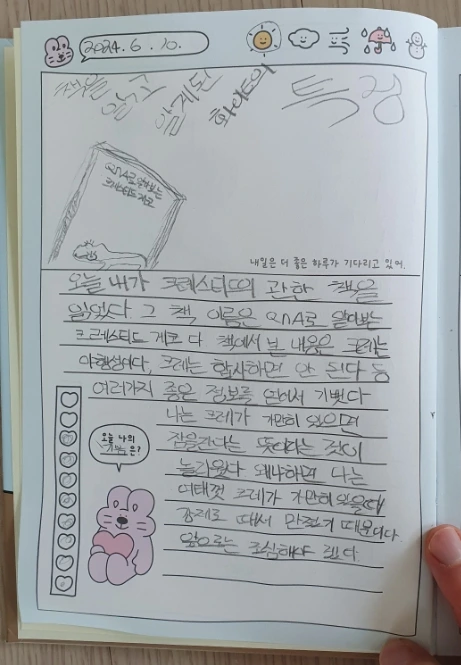 2024. 6. 10.
책을 읽고 알게된 화이트의 특징
QnA로 알아보는
크레스티드 게코
내일은 더 좋은 하루가 기다리고 있어.
오늘 내가 크레스티드의 관한 책을
읽었다. 그 책 이름은 QnA로 알아보는
크레스티드 게코 다 책에서 본 내용은 크레는
야행성이다, 크레는 합사하면 안 된다 등
여러가지 좋은 정보를 얻어서 기뻤다
나는 크레가 가만히 있으면
잠을잔다는 뜻이라는 것이
놀라웠다 왜냐하면 나는
여태껏 크레가 가만히있을때
강제로 때서 만졌기 때문이다
앞으로는 조심해야 겠다
오늘 나의
기분은?